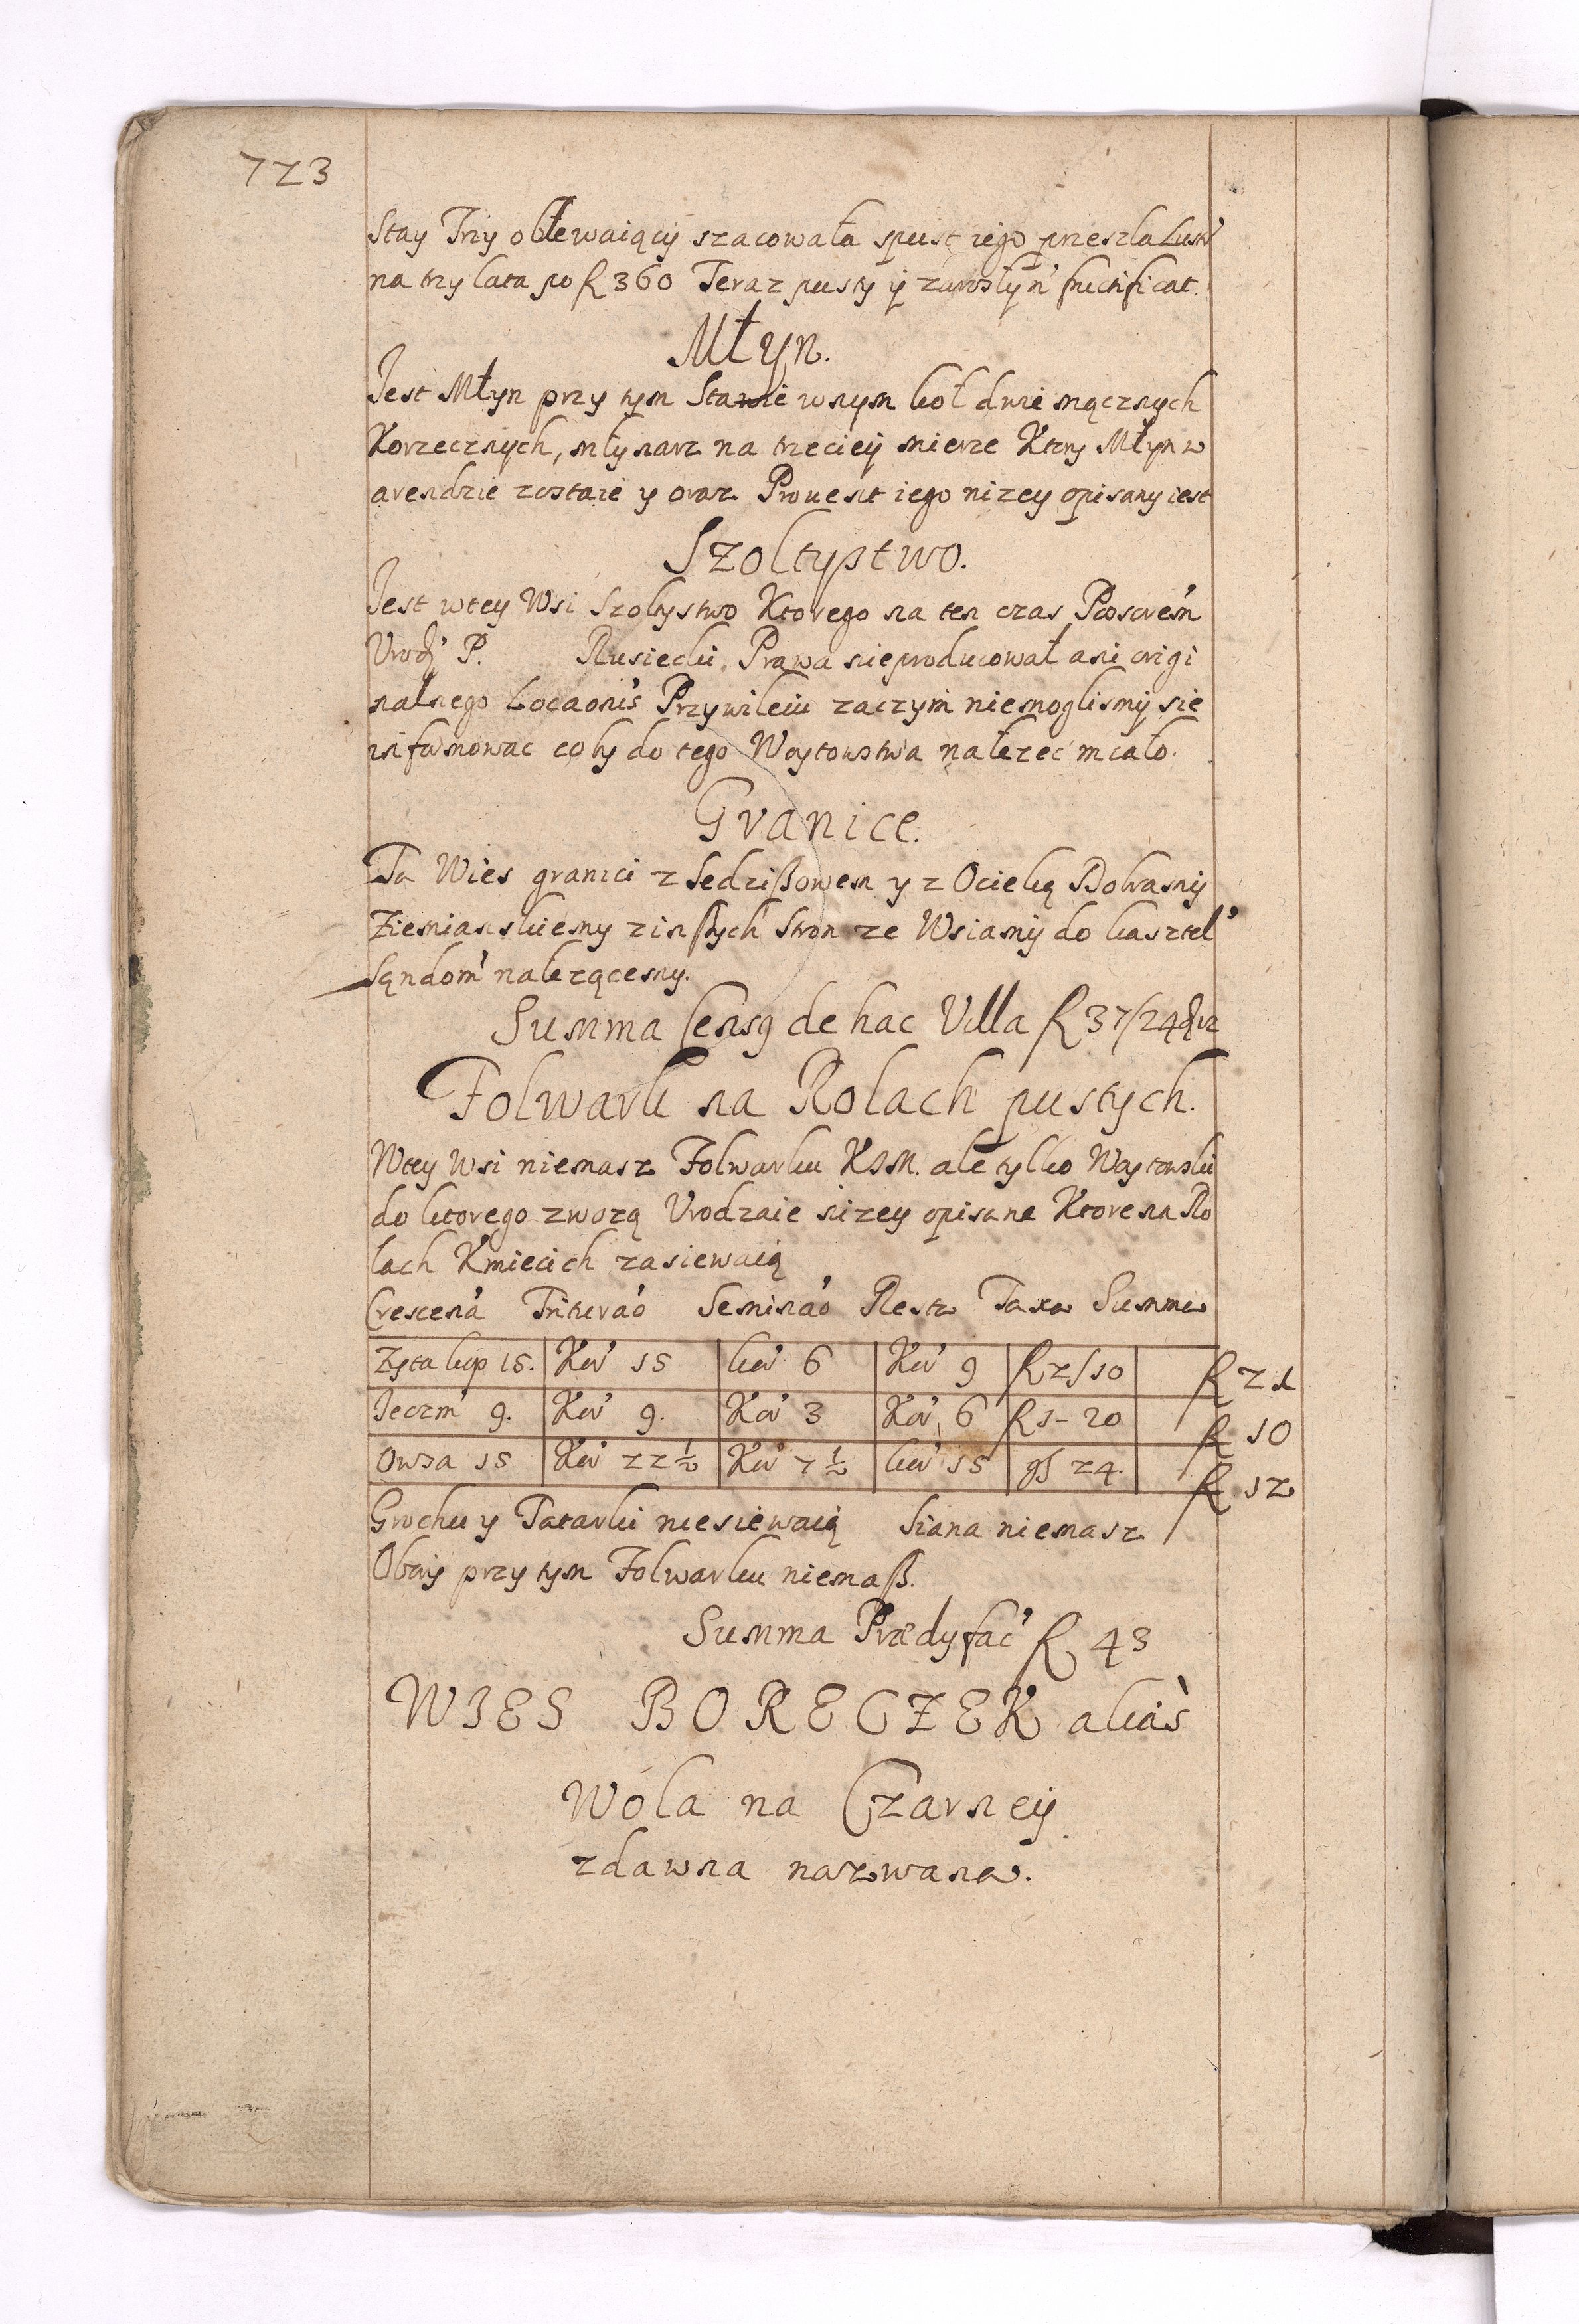 723
Stay Trzy oblewaiący szacowała spust iego przeszla Lustr
na trzy lata po f 360 Teraz pusty y zarosły ń fructificat.
Młyn.
Jest Młyn przy tym Stawie w nym koł dwie mącznych
Korzecznych, młynarz na trzeciey mierze Ktory Młyn w
arendzie zostaie y oraz Prouent iego nizey opisany iest
Szoltystwo.
Jest w tey Wsi Szoltystwo Ktorego na ten czas
Urodz' P. Rusiecki. Prawa nieproducował ani origi
nalnego Locaonis Przywileiu zaczym niemoglismy sie
informowac coby do tego Woytowstwa należec miało.
Granice.
Ta Wies granici z Sedziszowem y z Ocieką Dobrami
Ziemianskiemy z inszych stron ze Wsiamy do kasztel'
Sandom' nalezącemy.
Summa Censu de hac Villa f 37/24
Folwark na Rolach pustych.
W tey Wsi niemasz Folwarku KJM. ale tylko Woytowski
do ktorego zwozą Urodzaie nizey opisane Ktore na Ro
lach Kmiecich zasiewaią
Crescen'a Triturao Seminao Resta Taxa Summa
Zyta kop 15. Kor' 15 kor' 6 Kor' 9 f 2/10 f 21
Jeczm' 9. Kor' 9. Kor' 3 Kor' 6 f 1-20 f 10
Owsa 15 Kor' 22 1/2 Kor' 7 1/2 kor' 15 gs 24. f 12
Grochu y Tatarki niesiewaią Siana niemasz
Obory przy tym Folwarku niemasz.
Summa Prædyfac' f 43
WIES BORECZEK aliàs
Wola na Czarney
zdawna nazwana.